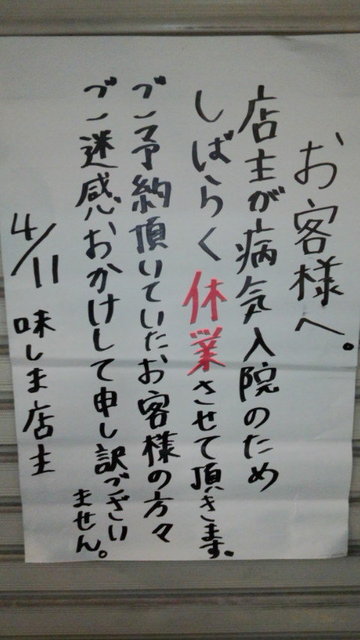 お客様へ。
店主が病気入院のため
しばらく休業させて頂きます。
ご予約頂いていたお客様の方々
ご迷惑おかけして申し訳ござい
ません。
4/11 味しま店主